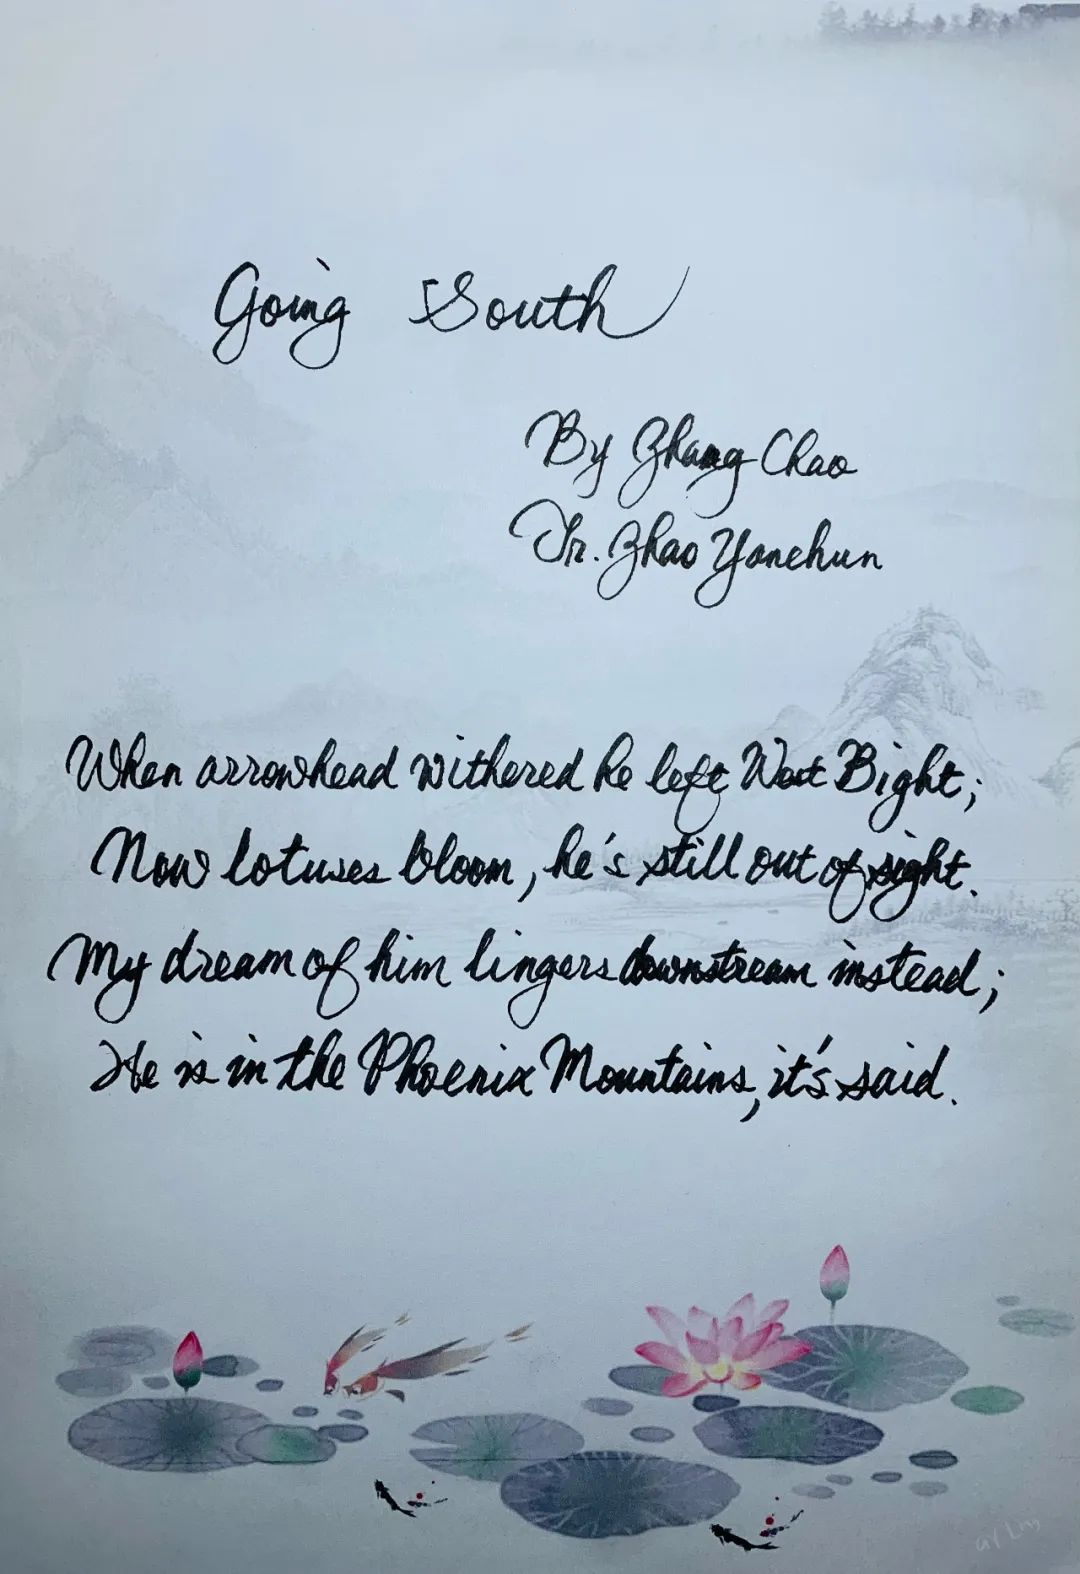 Going South
By Zhang Chao
Tr. Zhao Yanchun
When arrowhead withered he left West Bight;
Now lotuses bloom, he's still out of sight.
My dream of him lingers downstream instead;
He is in the Phoenix Mountains, it's said.